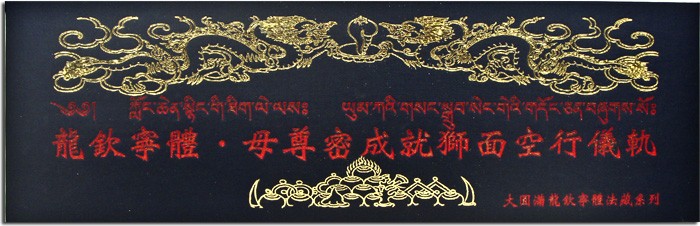 ༄༅། ཀློང་ཆེན་སྙིང་གི་ཐིག་ལེ་ལས༔ ཡུམ་ཀའི་གསང་སྒྲུབ་སེང་གེའི་གདོང་ཅན་བཞུགས་སོ༔
龍欽寧體・母尊密成就獅面空行儀軌
大圓滿龍欽寧體法藏系列